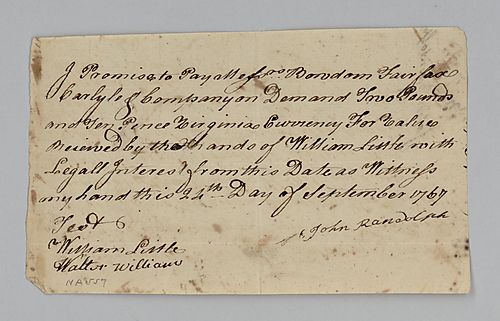 I Promise to Pay Messrs Bowdom Fairfax
Carlyle & Company on Demand Two Pounds
and Ten Pence Virginia Currency For Value
Received by the hands of William Little with
Legall Interest from this Date as Witness
my hand this 24th Day of September 1767
Test
John Randolph
William Little
Walter Williams
NA957